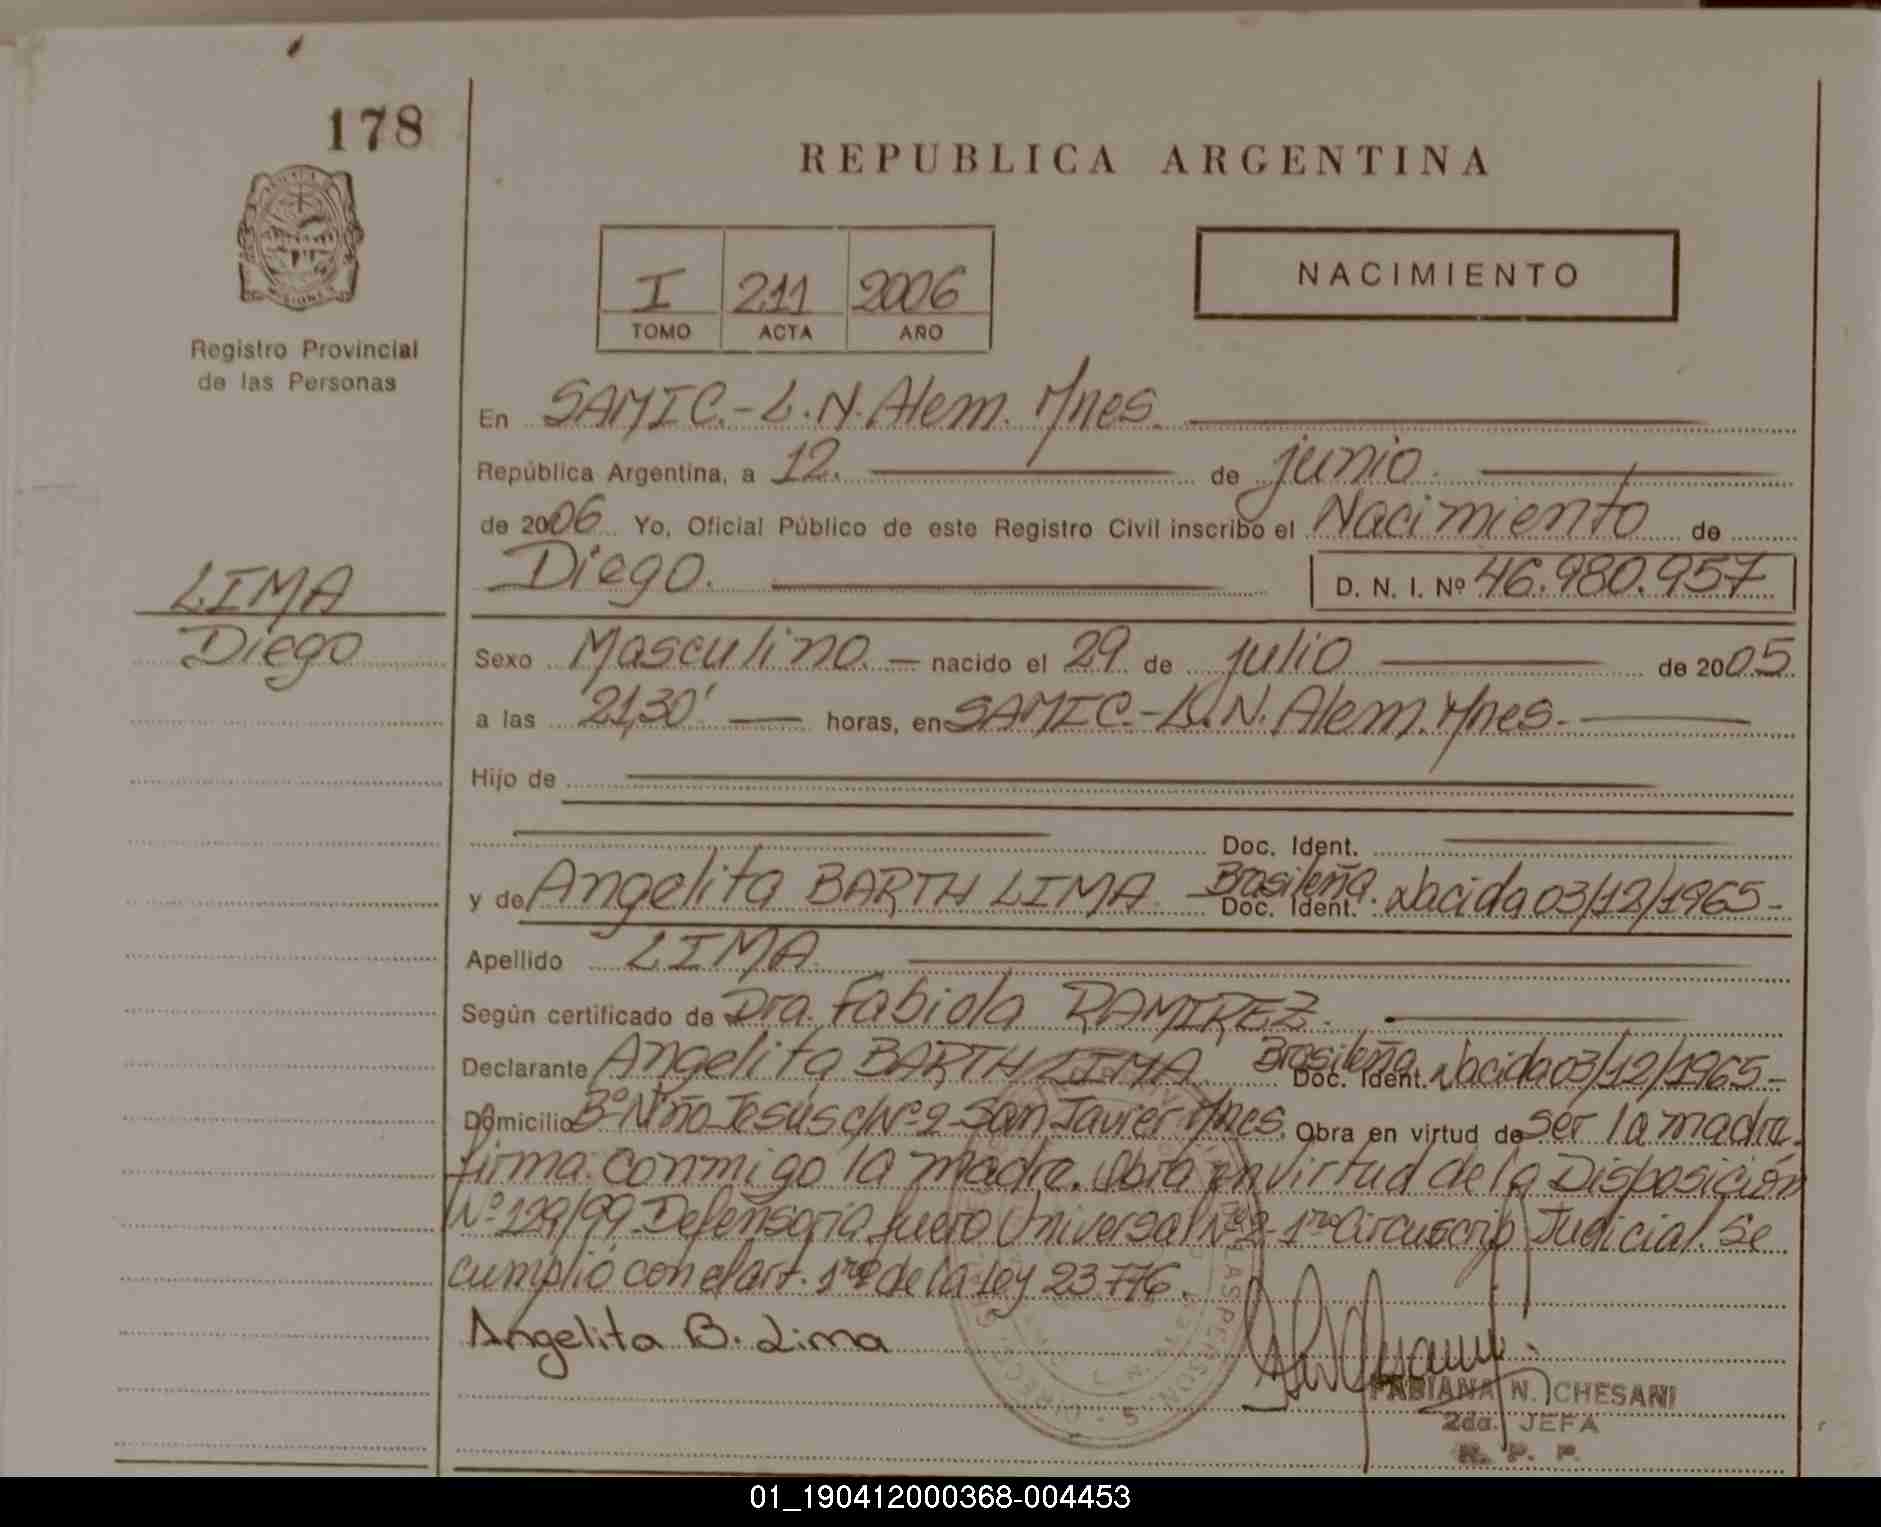 178
REPUBLICA ARGENTINA
I 211 2006
TOMO ACTA AÑO
NACIMIENTO
Registro Provincial
de las Personas
En SAMIC.-L.N.Alem.Mnes.
República Argentina, a 12. de junio.
de 2006 Yo, Oficial Público de este Registro Civil inscribo el Nacimiento de
Diego. D. N. I. Nº 46.980.957
LIMA
Diego
Sexo Masculino nacido el 29 de julio de 2005
a las 21,30' horas, en SAMIC.-L.N.Alem.Mnes.-
Hijo de
Doc. Ident.
y de Angelita BARTH LIMA Brasileña. Doc. Ident. Nacida 03/12/1965-
Apellido LIMA
Según certificado de Dra. Fabiola RAMIREZ.
Declarante Angelita BARTH LIMA Brasileña Doc. Ident. Nacida 03/12/1965-
Domicilio Bº Niño Jesús c/Nº2-San Javier Mnes. Obra en virtud de ser la madre.
firma conmigo la madre. Obra en virtud de la Disposición
Nº 129/99 Defensoria fuero Universal Nº2-1ra Circuscrip Judicial. Se
cumplió con el art. 1ro de la Ley 23776.
Angelita B. Lima
FABIANA N. CHESANI
2da. JEFA
R. P. P.
01_190412000368-004453